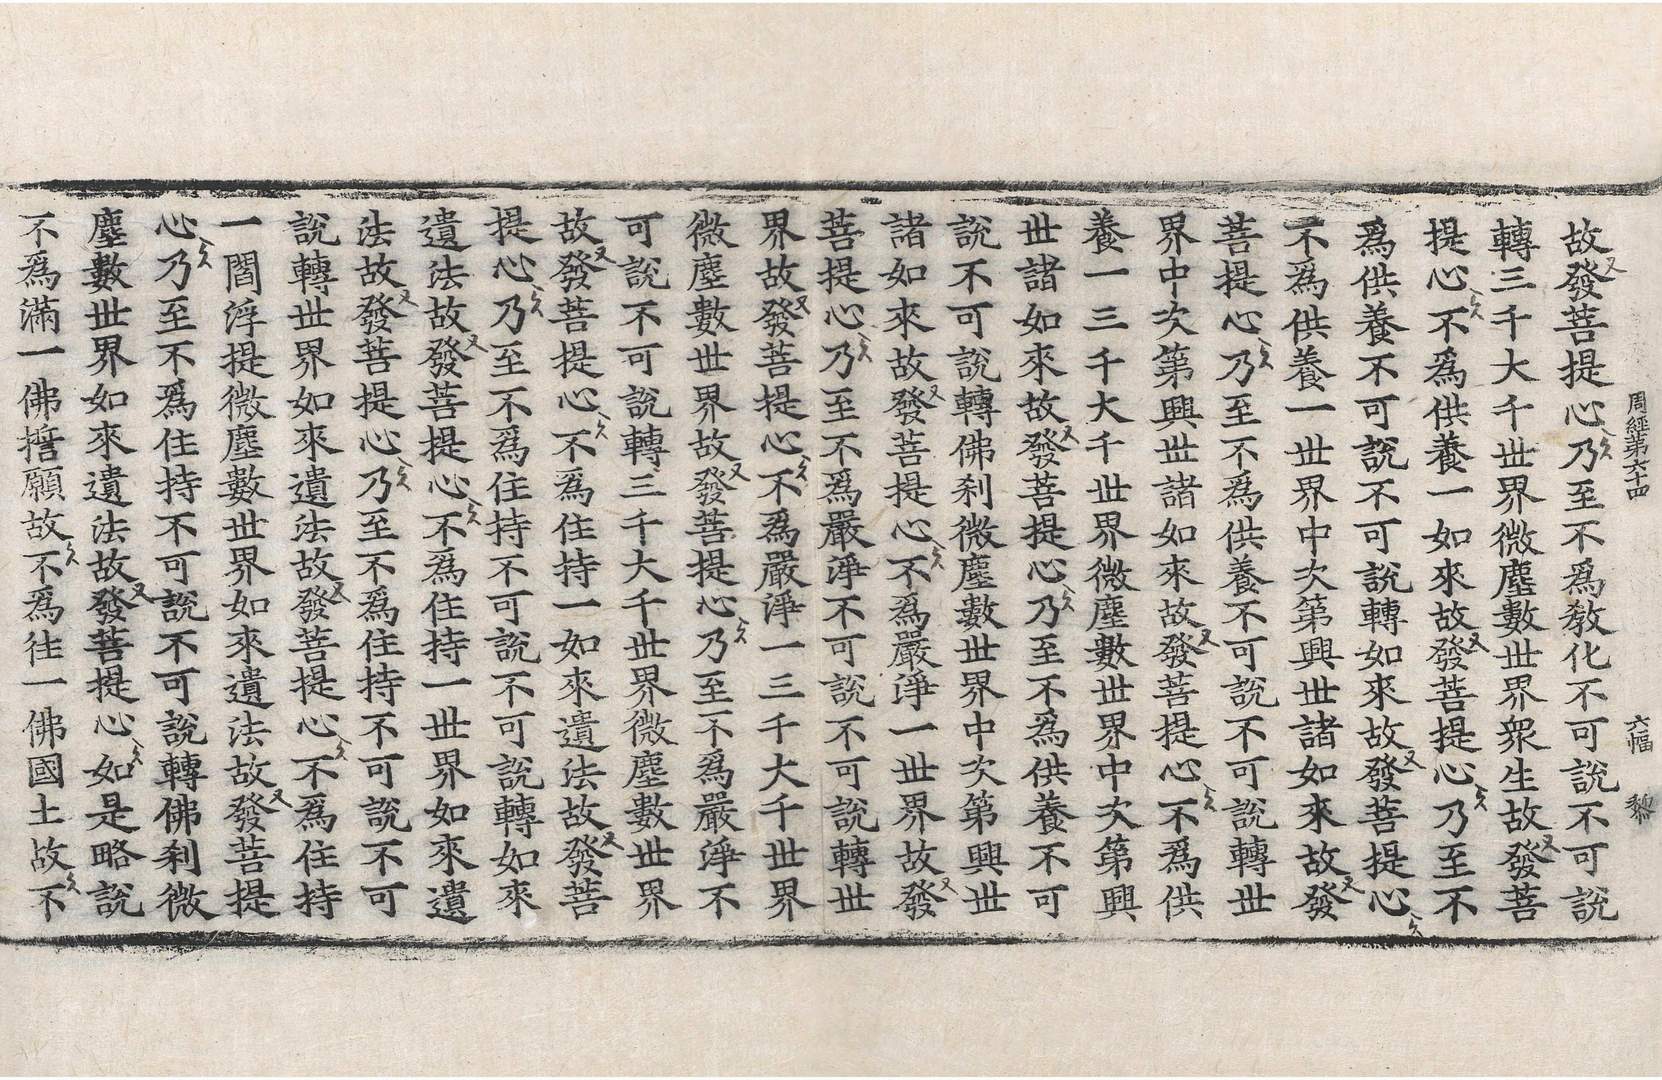 周經第六十四 六幅 黎
故發菩提心乃至不爲敎化不可說不可說
轉三千大千世界微塵數世界衆生故發菩
提心不爲供養一如來故發菩提心乃至不
爲供養不可說不可說轉如來故發菩提心
不爲供養一世界中次第興世諸如來故發
菩提心乃至不爲供養不可說不可說轉世
界中次第興世諸如來故發菩提心不爲供
養一三千大千世界微塵數世界中次第興
世諸如來故發菩提心乃至不爲供養不可
說不可說轉佛刹微塵數世界中次第興世
諸如來故發菩提心不爲嚴淨一世界故發
菩提心乃至不爲嚴淨不可說不可說轉世
界故發菩提心不爲嚴淨一三千大千世界
微塵數世界故發菩提心乃至不爲嚴淨不
可說不可說轉三千大千世界微塵數世界
故發菩提心不爲住持一如來遺法故發菩
提心乃至不爲住持不可說不可說轉如來
遺法故發菩提心不爲住持一世界如來遺
法故發菩提心乃至不爲住持不可說不可
說轉世界如來遺法故發菩提心不爲住持
一閻浮提微塵數世界如來遺法故發菩提
心乃至不爲住持不可說不可說轉佛刹微
塵數世界如來遺法故發菩提心如是略說
不爲滿一佛誓願故不爲往一佛國土故不